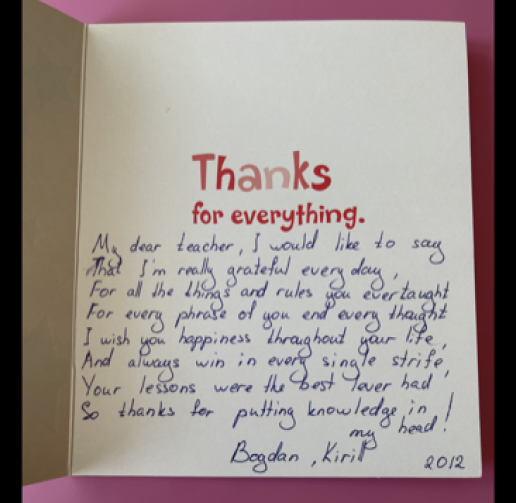 Thanks
for everything.
My dear teacher, I would like to say
That I'm really grateful every day,
For all the things and rules you ever taught
For every phrase of you end every thought
I wish you happiness throughout your life,
And always win in every single strife,
Your lessons were the best I ever had,
So thanks for putting knowledge in
my head!
Bogdan, Kirill
2012